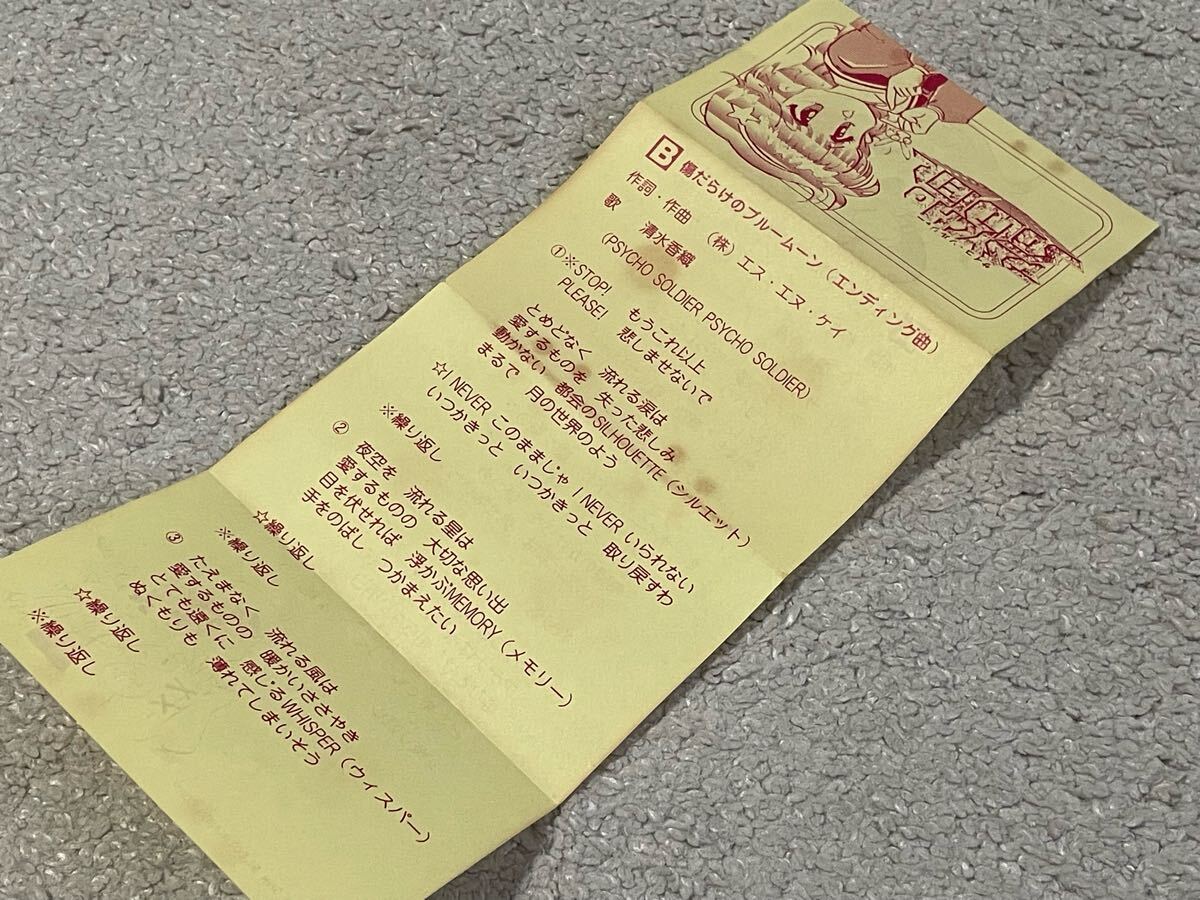 B 傷だらけのブルームーン(エンディング曲)
作詞・作曲 (株)エス・エヌ・ケイ
歌 清水香織
(PSYCHO SOLDIER PSYCHO SOLDIER)
①※STOP! もうこれ以上
PLEASE! 悲しませないで
とめどなく 流れる涙は
愛するものを 失った悲しみ
動かない 都会のSILHOUETTE(シルエット)
まるで 月の世界のよう
☆I NEVER このままじゃ I NEVER いられない
いつかきっと いつかきっと 取り戻すわ
※繰り返し
② 夜空を 流れる星は
愛するものの 大切な思い出
目を伏せれば 浮かぶMEMORY(メモリー)
手をのばし つかまえたい
☆繰り返し
※繰り返し
③ たえまなく 流れる風は
愛するものの 暖かいささやき
とても遠くに 感じるWHISPER(ウィスパー)
ぬくもりも 薄れてしまいそう
☆繰り返し
※繰り返し